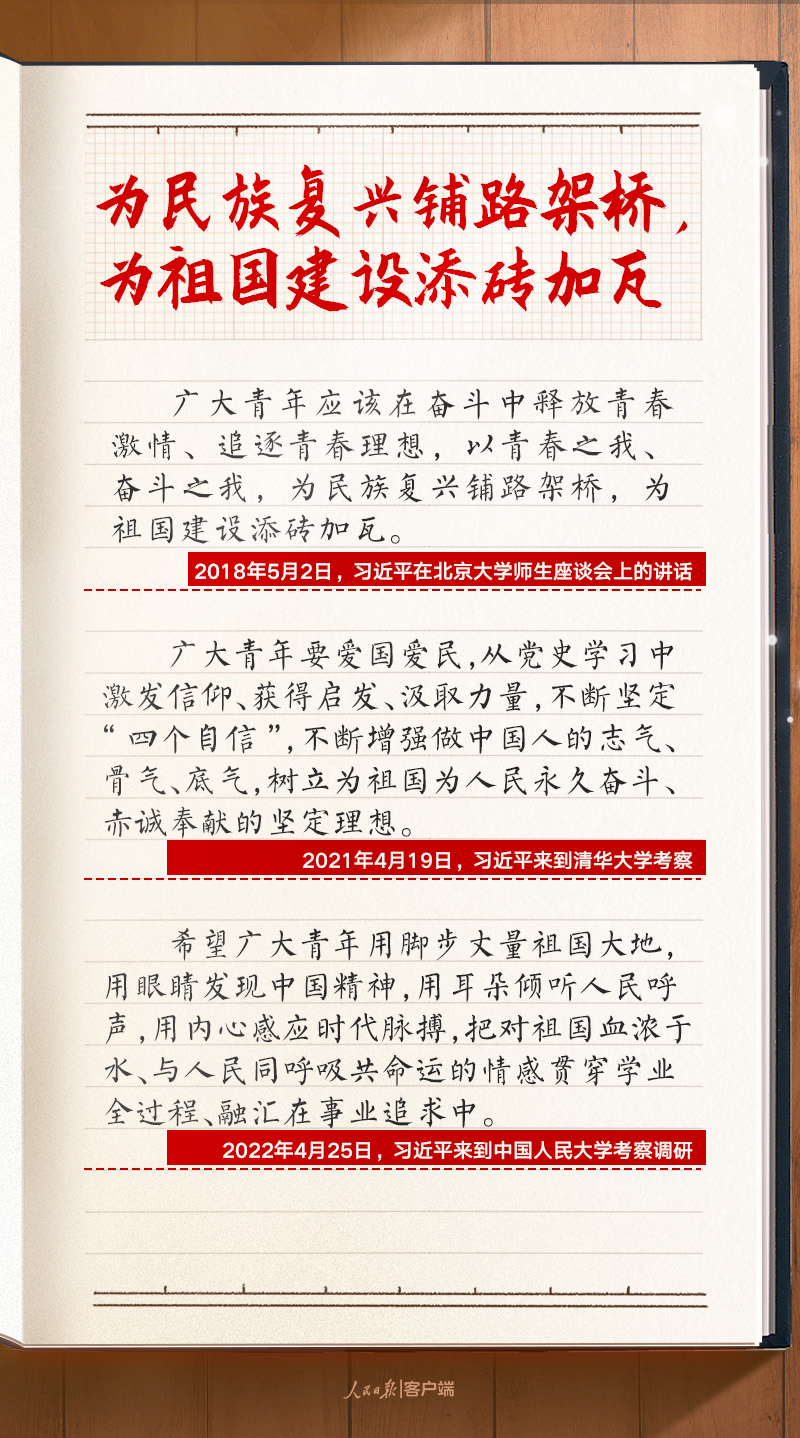 为民族复兴铺路架桥，
为祖国建设添砖加瓦
广大青年应该在奋斗中释放青春
激情、追逐青春理想，以青春之我、
奋斗之我，为民族复兴铺路架桥，为
祖国建设添砖加瓦。
2018年5月2日，习近平在北京大学师生座谈会上的讲话
广大青年要爱国爱民，从党史学习中
激发信仰、获得启发、汲取力量，不断坚定
“四个自信”，不断增强做中国人的志气、
骨气、底气，树立为祖国为人民永久奋斗、
赤诚奉献的坚定理想。
2021年4月19日，习近平来到清华大学考察
希望广大青年用脚步丈量祖国大地，
用眼睛发现中国精神，用耳朵倾听人民呼
声，用内心感应时代脉搏，把对祖国血浓于
水、与人民同呼吸共命运的情感贯穿学业
全过程、融汇在事业追求中。
2022年4月25日，习近平来到中国人民大学考察调研
人民日报|客户端